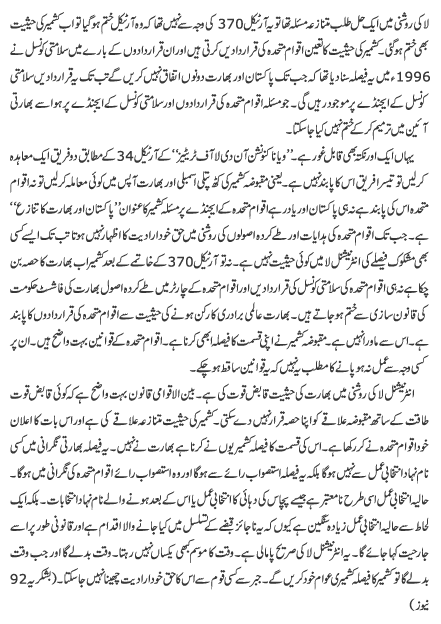 لا کی روشنی میں ایک حل طلب متنازعہ مسئلہ تھا تو یہ آرٹیکل 370 کی وجہ سے نہیں تھا کہ وہ آرٹیکل ختم ہو گیا تو اب کشمیر کی حیثیت
بھی ختم ہو گئی۔ کشمیر کی حیثیت کا تعین اقوام متحدہ کی قراردادیں کرتی ہیں اور ان قراردادوں کے بارے میں سلامتی کونسل نے
1996ء میں یہ فیصلہ سنا دیا تھا کہ جب تک پاکستان اور بھارت دونوں اتفاق نہیں کریں گے تب تک یہ قراردادیں سلامتی
کونسل کے ایجنڈے پر موجود رہیں گی۔ جو مسئلہ اقوام متحدہ کی قراردادوں اور سلامتی کونسل کے ایجنڈے پر ہوا سے بھارتی
آئین میں ترمیم کر کے ختم نہیں کیا جا سکتا۔
یہاں ایک اور نکتہ بھی قابل غور ہے۔ ”ویانا کنونشن آن دی لا آف ٹریٹیز“ کے آرٹیکل 34 کے مطابق دو فریق ایک معاہدہ
کر لیں تو تیسرا فریق اس کا پابند نہیں ہے۔ یعنی مقبوضہ کشمیر کی کٹھ پتلی اسمبلی اور بھارت آپس میں کوئی معاملہ کر لیں تو نہ اقوام
متحدہ اس کی پابند ہے نہ ہی پاکستان اور یاد رہے اقوام متحدہ کے ایجنڈے پر مسئلہ کشمیر کا عنوان ”پاکستان اور بھارت کا تنازع“
ہے۔ جب تک اقوام متحدہ کی ہدایات اور طے کردہ اصولوں کی روشنی میں حق خود ارادیت کا اظہار نہیں ہوتا تب تک ایسے کسی
بھی مشکوک فیصلے کی انٹرنیشنل لا میں کوئی حیثیت نہیں ہے۔ نہ تو آرٹیکل 370 کے خاتمے کے بعد کشمیر اب بھارت کا حصہ بن
چکا ہے نہ ہی سلامتی کونسل کی قراردادیں اور اقوام متحدہ کے چارٹر میں طے کردہ اصول بھارت کی فاشسٹ حکومت
کی قانون سازی سے ختم ہو جاتے ہیں۔ بھارت عالمی برادری کا رکن ہونے کی حیثیت سے اقوام متحدہ کی قراردادوں کا پابند
ہے۔ اس سے ماورا نہیں ہے۔ مقبوضہ کشمیر نے اپنی قسمت کا فیصلہ ابھی کرنا ہے۔ اقوام متحدہ کے قوانین بہت واضح ہیں۔ ان پر
کسی وجہ سے عمل نہ ہو پانے کا مطلب یہ نہیں کہ یہ قوانین ساقط ہو چکے۔
انٹرنیشنل لا کی روشنی میں بھارت کی حیثیت قابض قوت کی ہے۔ بین الاقوامی قانون بہت واضح ہے کہ کوئی قابض قوت
طاقت کے ساتھ مقبوضہ علاقے کو اپنا حصہ قرار نہیں دے سکتی۔ کشمیر کی حیثیت متنازعہ علاقے کی ہے اور اس بات کا اعلان
خود اقوام متحدہ نے کر رکھا ہے۔ اس کی قسمت کا فیصلہ کشمیریوں نے کرنا ہے بھارت نے نہیں۔ یہ فیصلہ بھارتی نگرانی میں کسی
نام نہاد انتخابی عمل سے نہیں ہو گا بلکہ یہ فیصلہ استصواب رائے سے ہو گا اور وہ استصواب رائے اقوام متحدہ کی نگرانی میں ہو گا۔
حالیہ انتخابی عمل اسی طرح نامعتبر ہے جیسے پچاس کی دہائی کا انتخابی عمل یا اس کے بعد ہونے والے نام نہاد انتخابات۔ بلکہ ایک
لحاظ سے حالیہ انتخابی عمل زیادہ سنگین ہے کیوں کہ یہ ناجائز قبضے کے تسلسل میں کیا جانے والا اقدام ہے اور قانونی طور پر اسے
جارحیت کہا جائے گا۔ یہ انٹرنیشنل لا کی صریح پامالی ہے۔ وقت کا موسم کبھی یکساں نہیں رہتا۔ وقت بدلے گا اور جب وقت
بدلے گا تو کشمیر کا فیصلہ کشمیری عوام خود کریں گے۔ جبر سے کسی قوم سے اس کا حق خود ارادیت چھینا نہیں جا سکتا۔ (بشکریہ 92
نیوز)